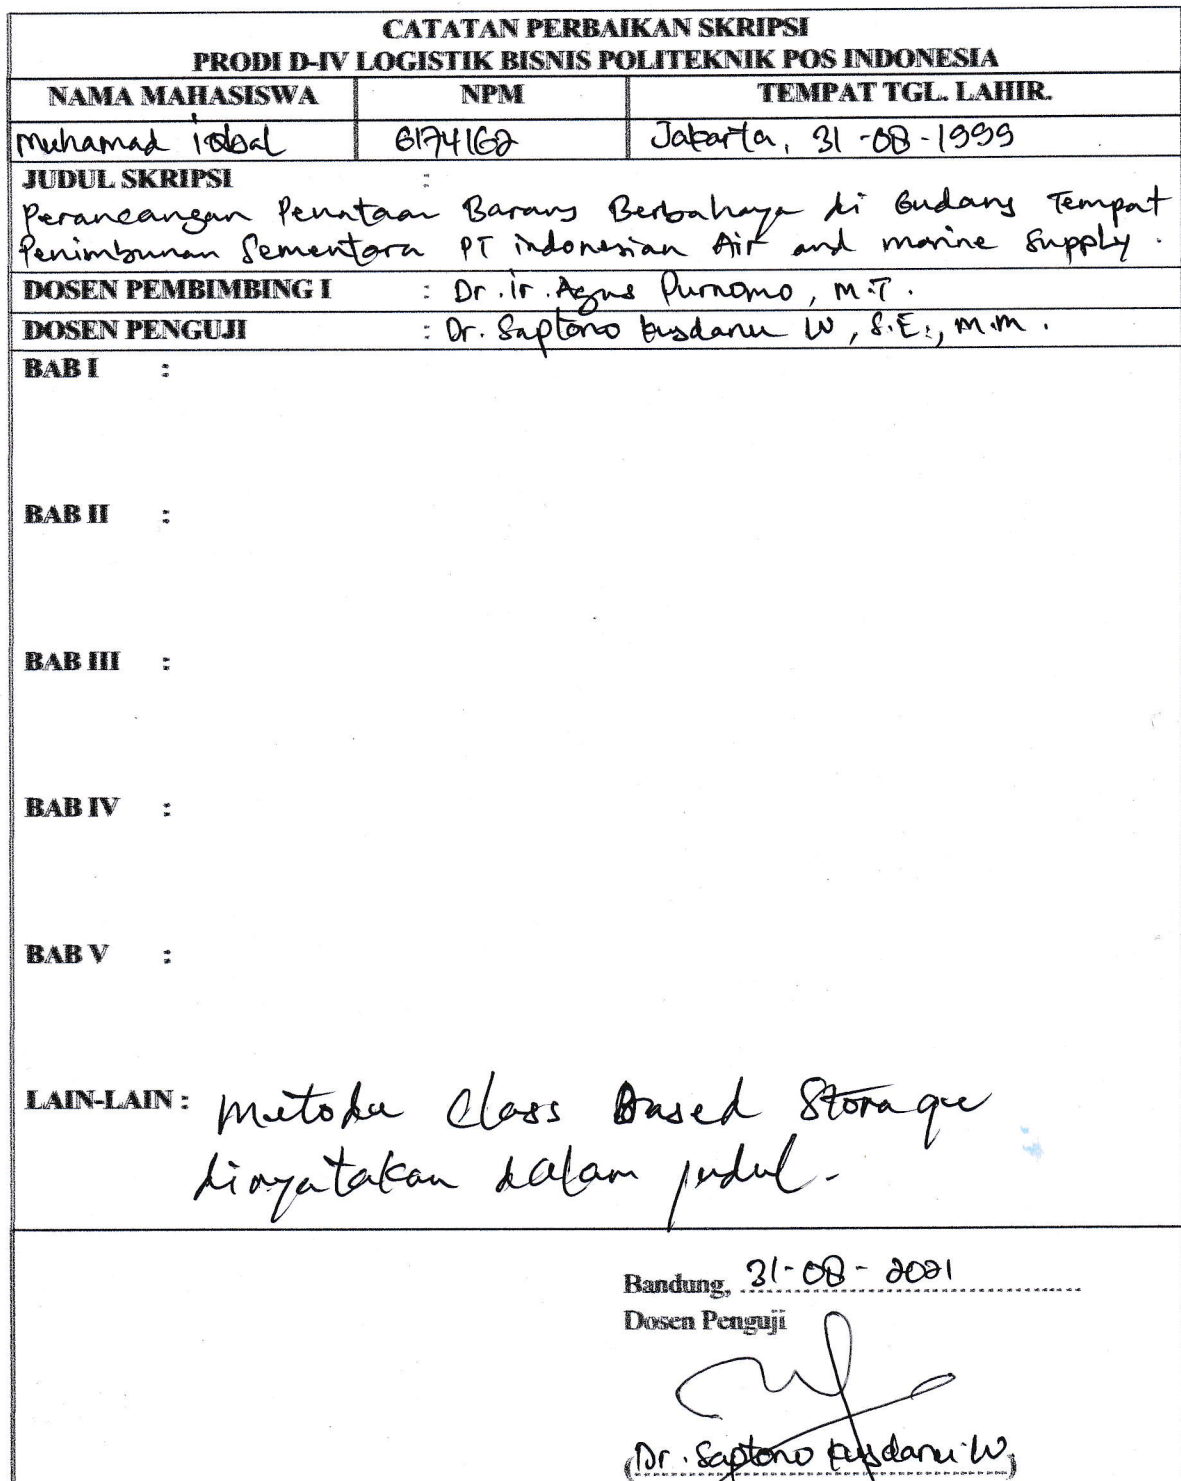 CATATAN PERBAIKAN SKRIPSI
PRODI D-IV LOGISTIK BISNIS POLITEKNIK POS INDONESIA
NAMA MAHASISWA NPM TEMPAT TGL. LAHIR.
Muhamad iqbal 6174162 Jakarta, 31-08-1999
JUDUL SKRIPSI :
Perancangan Penataan Barang Berbahaya di Gudang Tempat
Penimbunan Sementara PT indonesian Air and marine Supply.
DOSEN PEMBIMBING I : Dr. Ir. Agus Purnomo, M.T.
DOSEN PENGUJI : Dr. Saptono kusdanu W, S.E., M.M.
BAB I :
BAB II :
BAB III :
BAB IV :
BAB V :
LAIN-LAIN : Metoda Class Based Storage
dinyatakan dalam judul.
Bandung, 31-08-2021
Dosen Penguji
(Dr. Saptono kusdanu W)